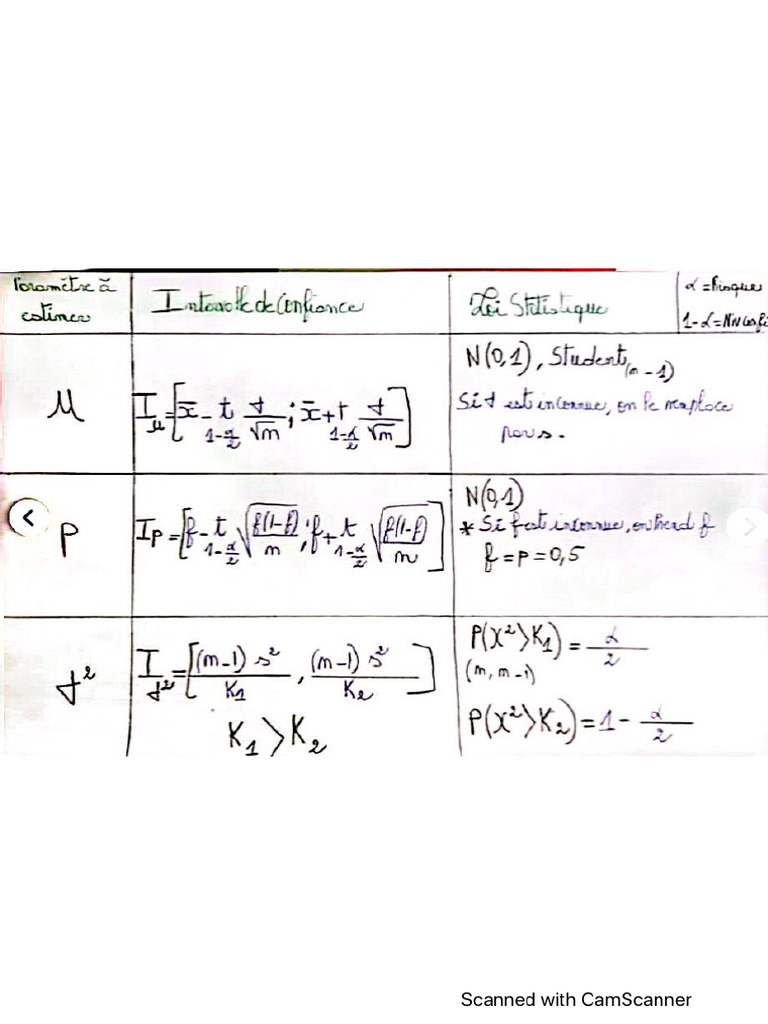 Paramètre à
estimer
Intervalle de Confiance
Loi Statistique
α = Risque
1-α = Niv confi
μ
I_μ = [x̄ - t_{1-α/2} σ/√n ; x̄ + t_{1-α/2} σ/√n]
N(0,1), Student_(n-1)
Si σ est inconnue, on le remplace
par s.
P
I_P = [f - t_{1-α/2} √(f(1-f)/n) ; f + t_{1-α/2} √(f(1-f)/n)]
N(0,1)
* Si f est inconnue, on prend f
f = P = 0,5
σ²
I_σ² = [(n-1) s²/K₁ , (n-1) s²/K₂]
K₁ > K₂
P(X² > K₁) = α/2
(n, n-1)
P(X² > K₂) = 1 - α/2
Scanned with CamScanner